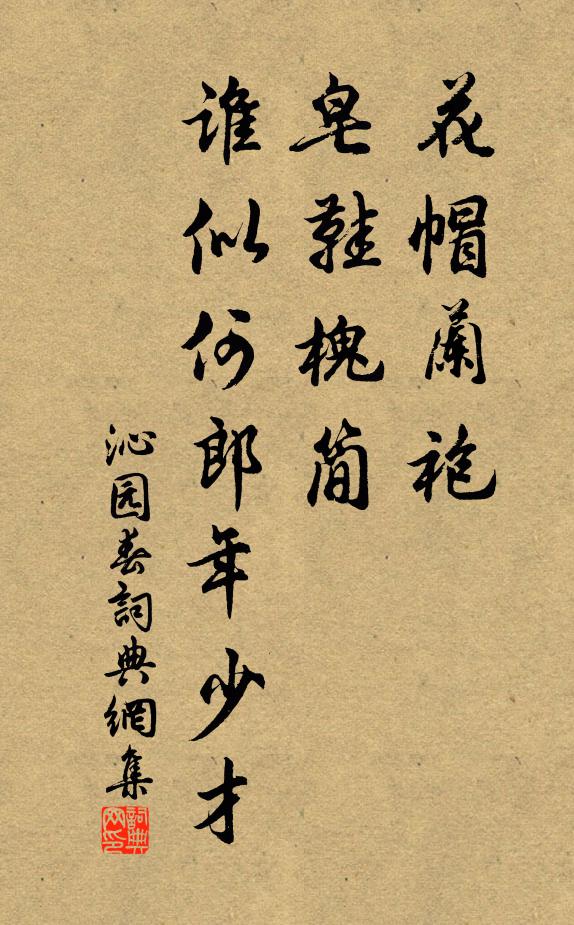 花帽蘭袍
皂鞋槐简
谁似何郎年少才
沁园春詞典網集
詞典网印